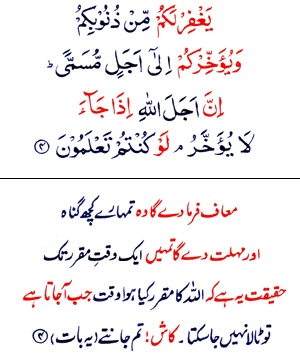 يَغْفِرْ لَكُمْ مِّنْ ذُنُوْبِكُمْ
وَيُؤَخِّرْكُمْ اِلٰٓى اَجَلٍ مُّسَمًّى ؕ
اِنَّ اَجَلَ اللّٰهِ اِذَا جَآءَ
لَا يُؤَخَّرُ ۘ لَوْ كُنْتُمْ تَعْلَمُوْنَ ﴿۴﴾
معاف فرما دے گا وہ تمہارے کچھ گناہ
اور مہلت دے گا تمہیں ایک وقتِ مقرر تک
حقیقت یہ ہے کہ اللہ کا مقرر کیا ہوا وقت جب آجاتا ہے
تو ٹالا نہیں جا سکتا۔ کاش! تم جانتے (یہ بات) ﴿۴﴾